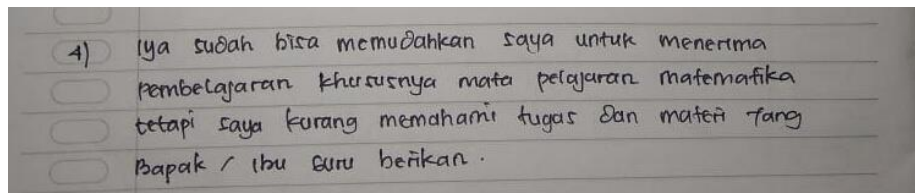 4) Iya sudah bisa memudahkan saya untuk menerima
pembelajaran khususnya mata pelajaran matematika
tetapi saya kurang memahami tugas dan materi yang
Bapak / Ibu guru berikan.